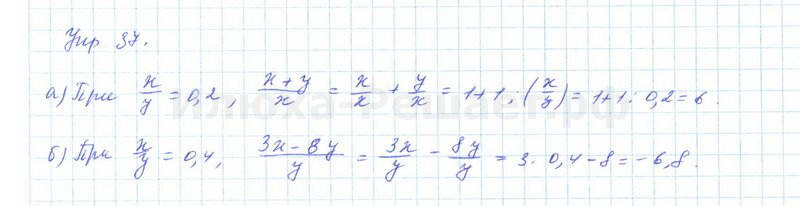 Упр 37.
а) При x/y = 0,2, (x+y)/x = x/x + y/x = 1+1:(x/y) = 1+1:0,2 = 6.
илюха-Решает.рф
б) При x/y = 0,4, (3x-8y)/y = 3x/y - 8y/y = 3·0,4-8 = -6,8.